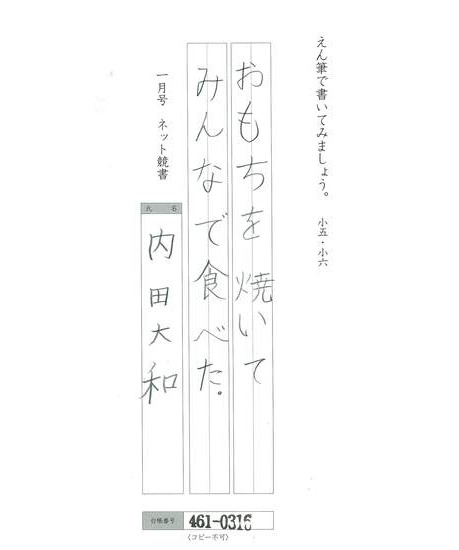 えん筆で書いてみましょう。 小五・小六
おもちを焼いて
みんなで食べた。
一月号 ネット競書
氏名
内田大和
台帳番号 461-0316
〈コピー不可〉